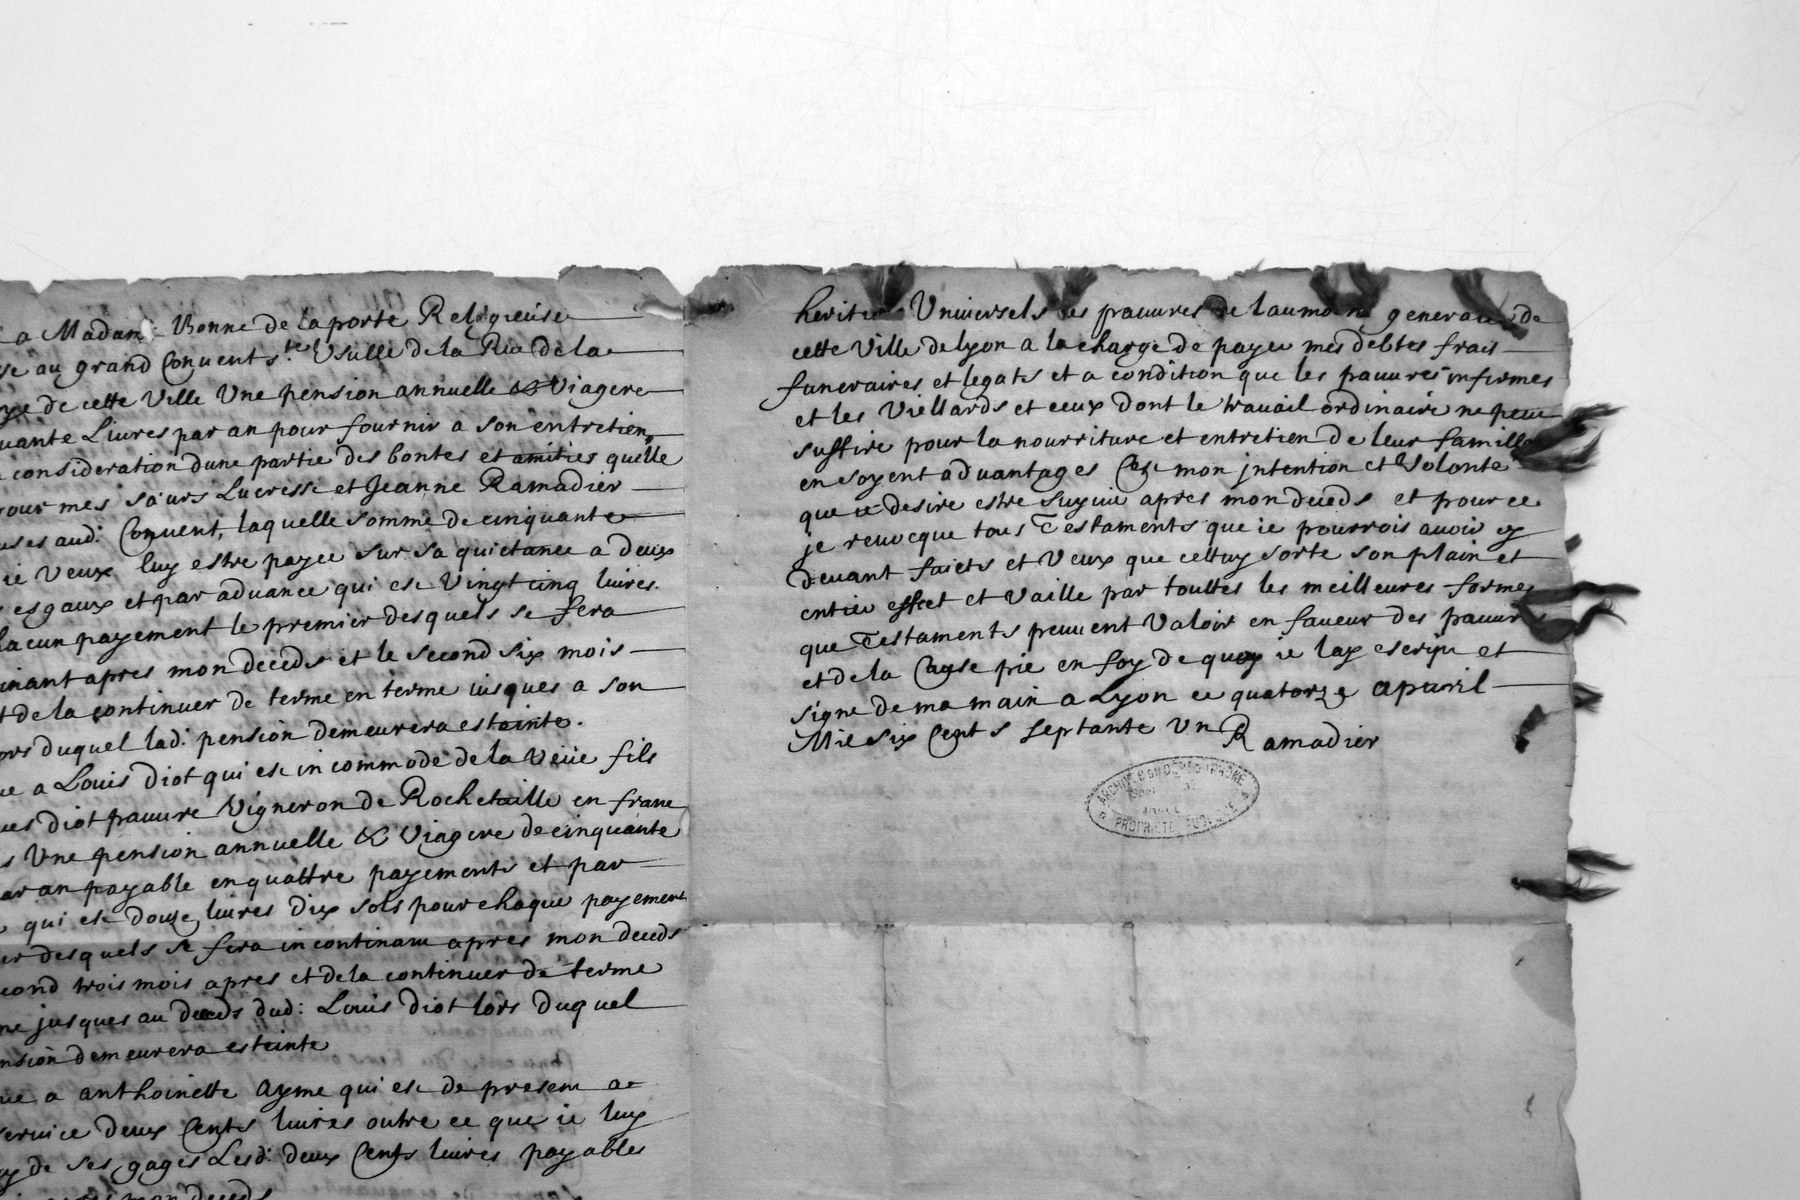 a Madame Bonne de Laporte Religieuse
au grand Convent Ste Ursulle de la Rue de la
de cette Ville Une pension annuelle & Viagere
Livres par an pour fournir a son entretien
consideration dune partie des bontes et amities quelle
pour mes sœurs Lucresse et Jeanne Ramadier
aud: Convent, laquelle somme de cinquante
ie Veux luy estre payee sur sa quictance a deux
esgaux et par advance qui est Vingt cinq livres
chacun payement le premier desquels se fera
apres mon deceds et le second six mois
de la continuer de terme en terme iusques a son
lors duquel lad: pension demeurera estainte.
a Louis diot qui est incommodé de la Veüe fils
diot pauvre Vigneron de Rochetaille en franc
Une pension annuelle & Viagere de cinquante
par an payable en quattre payements et par
qui est douze livres dix sols pour chaque payement
desquels se fera incontinant apres mon deceds
second trois mois apres et de la continuer de terme
jusques au deceds dud: Louis diot lors duquel
pension demeurera esteinte
a anthoinette ayme qui est de present a
service deux Cents livres outre ce que ie luy
de ses gages Lesd: deux Cents livres payables
mon deceds
heritiers Universels les pauvres de laumone generale de
cette Ville de lyon a la charge de payer mes debtes frais
funeraires et legats et a condition que les pauvres infirmes
et les Viellards et ceux dont le travail ordinaire ne peut
suffire pour la nourriture et entretien de leur famille
en soyent advantages Cest mon jntention et Volonté
que ie desire estre suyvie apres mon deceds et pour ce
je revocque tous Testaments que ie pourrois avoir cy
devant faicts et Veux que cettuy sorte son plain et
entier effect et Vaille par touttes les meilleures formes
que Testaments peuvent Valoir en faveur des pauvres
et de la Cause pie en foy de quoy ie lay escript et
signe de ma main a Lyon ce quatorze apvril
Mil six Cents septante Un Ramadier
ARCHIVES DU DÉPT DU RHONE
PROPRIÉTÉ PUBLIQUE